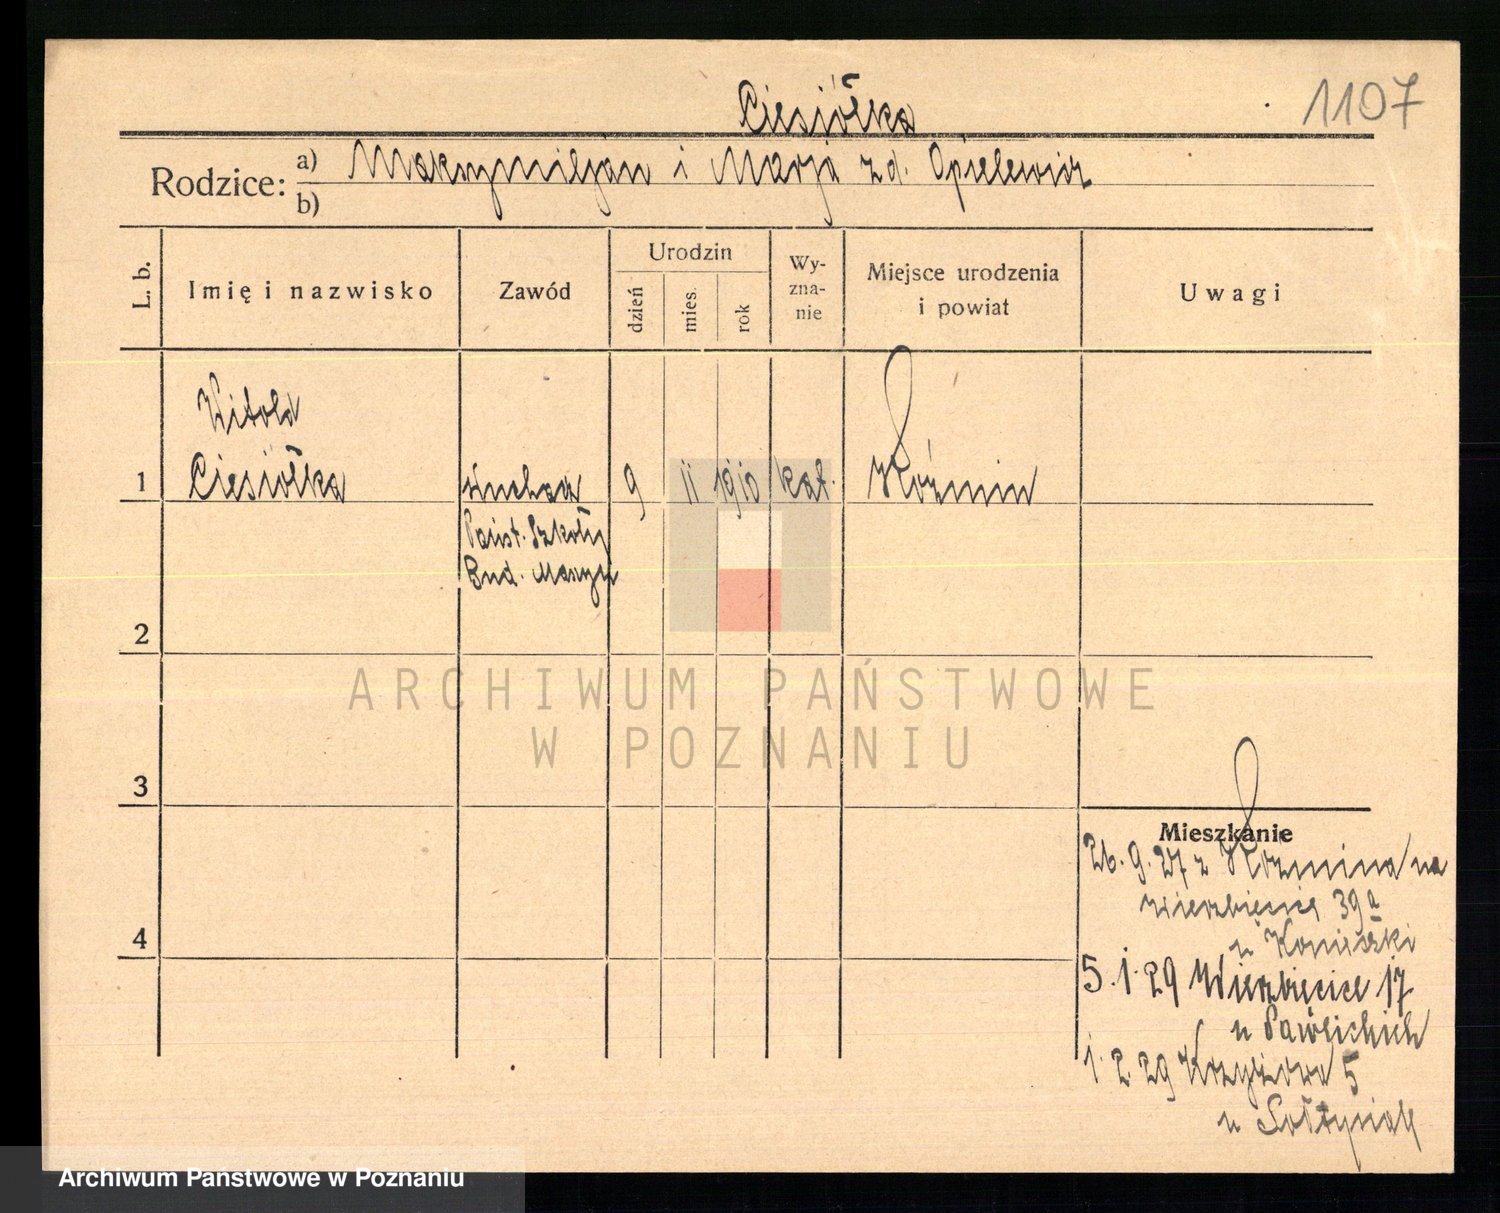 1107
Ciesiółka
Rodzice: a) Maksymiljan i Marja zd. Opielewicz
b)
L. b.
Imię i nazwisko
Zawód
Urodzin
dzień
mies.
rok
Wy-
zna-
nie
Miejsce urodzenia
i powiat
Uwagi
Witold
1 Ciesiółka
9 ii 1910 kat. Koźmin
Państ. Szkoły
Bud. Maszyn
2
ARCHIWUM PAŃSTWOWE
W POZNANIU
3
Mieszkanie
26.9.27 z Koźmina na
Wierzbięcice 39a
4
u
5.1.29 Wierzbięcice 17
u
1.2.29 Krzyżowa 5
u Sołtysiak
Archiwum Państwowe w Poznaniu